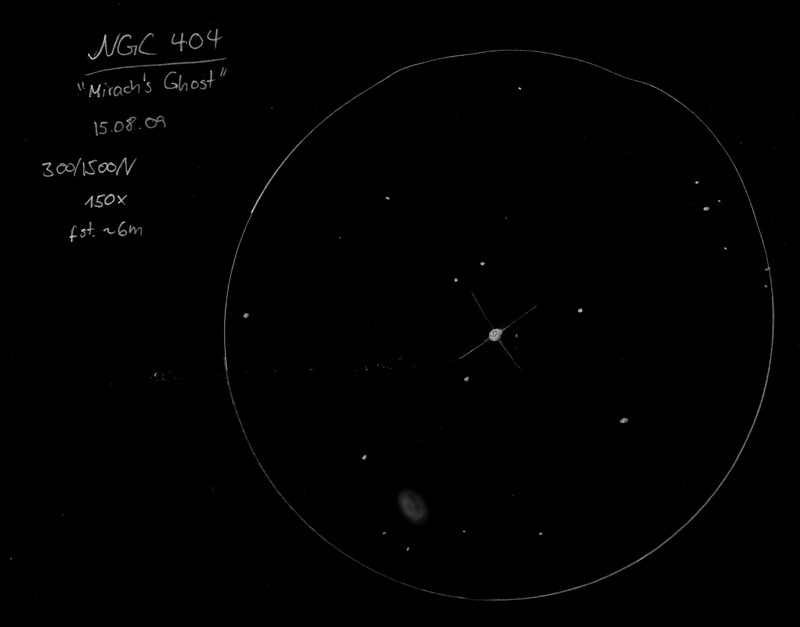 NGC 404
"Mirach's Ghost"
15.08.09
300/1500N
150x
fst. ~6m